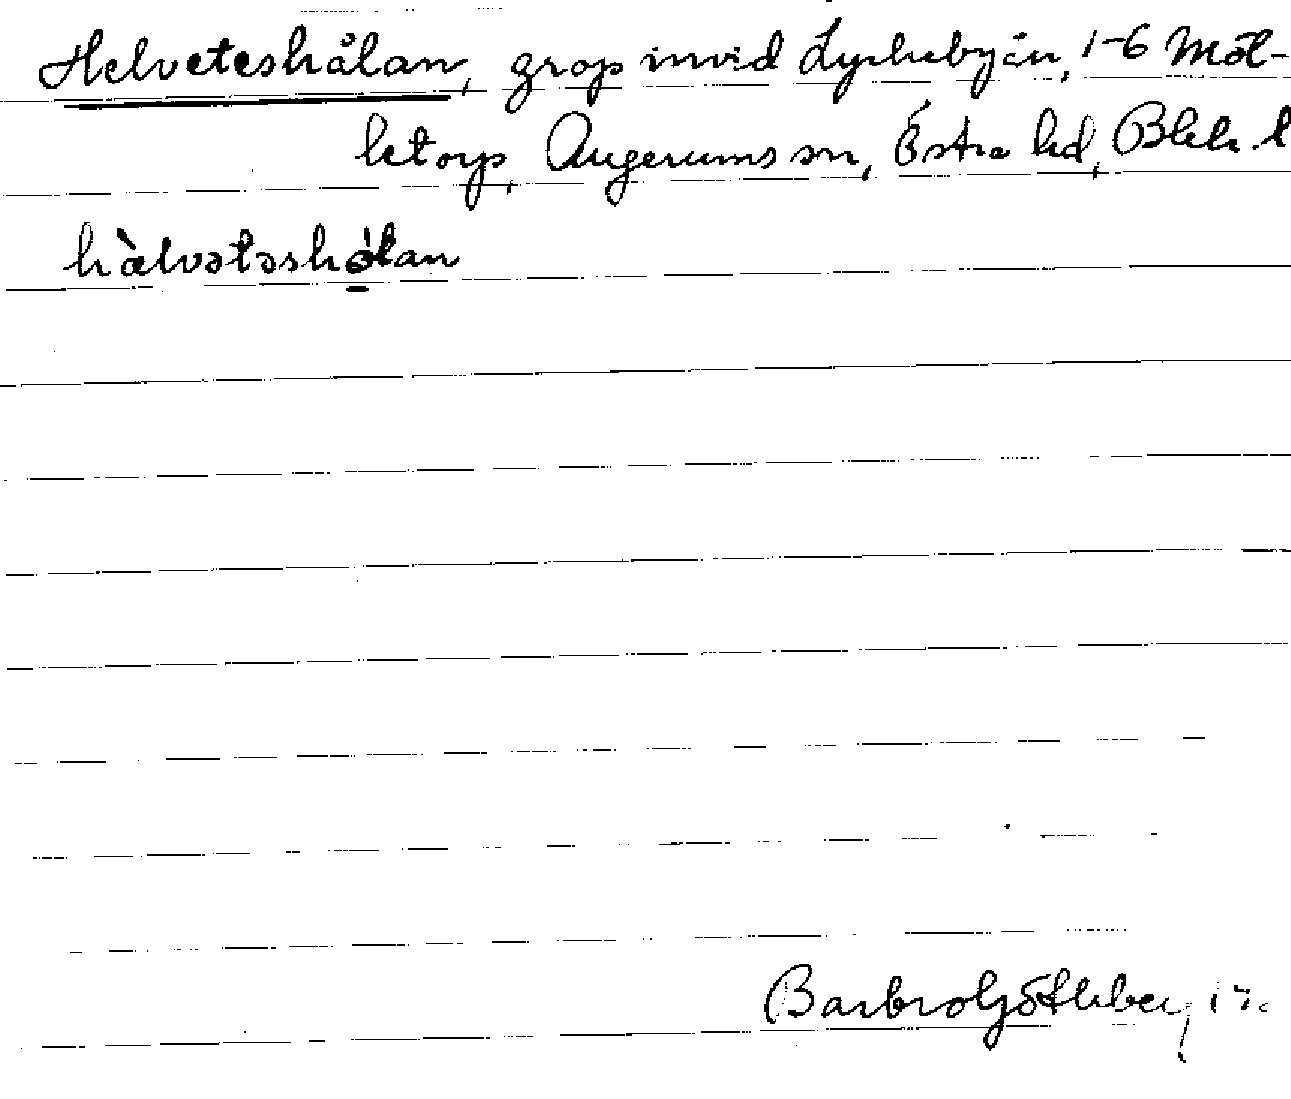 Helveteshålan, grop invid Lyckebyån, 1-6 Möl-
letorp, Augerums sn, Östra hd, Blek. l
hὰlvətəshǻlan
Barbro